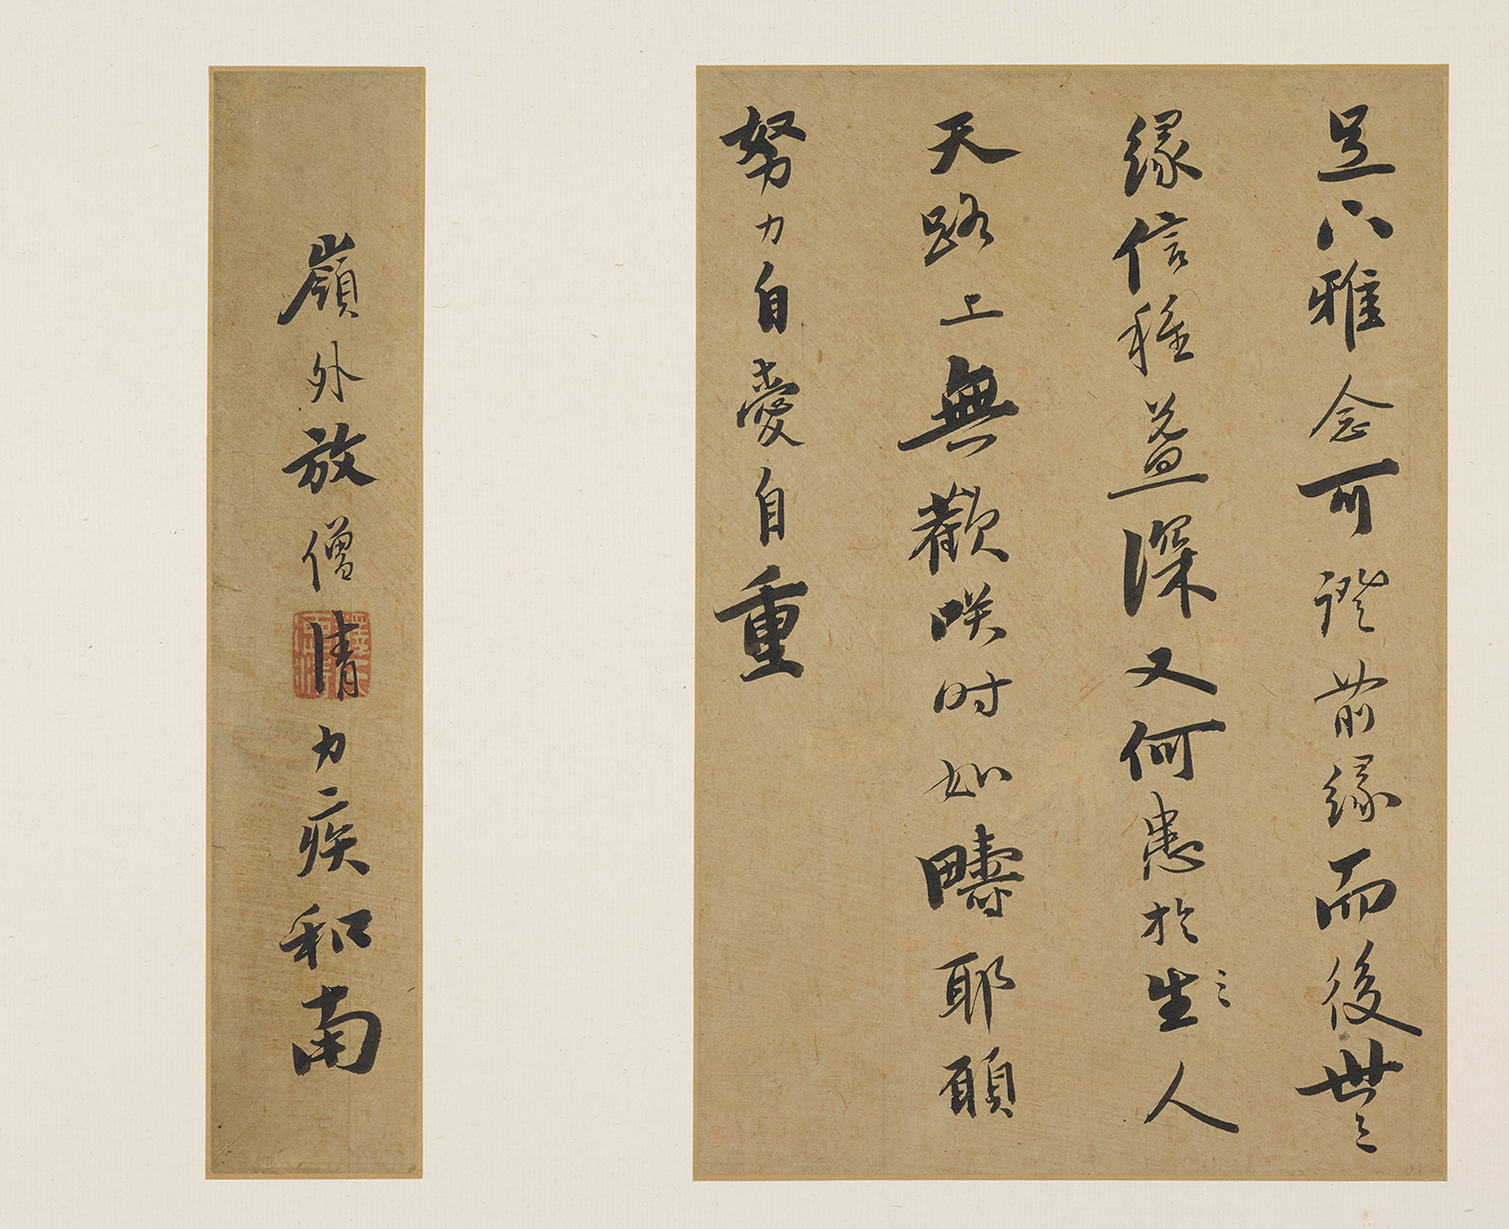 足下雅念可證前緣而後世〻
緣信種益深又何患於生〻人
天路上無歡咲时如疇耶願
努力自愛自重
嶺外放僧清力疾和南